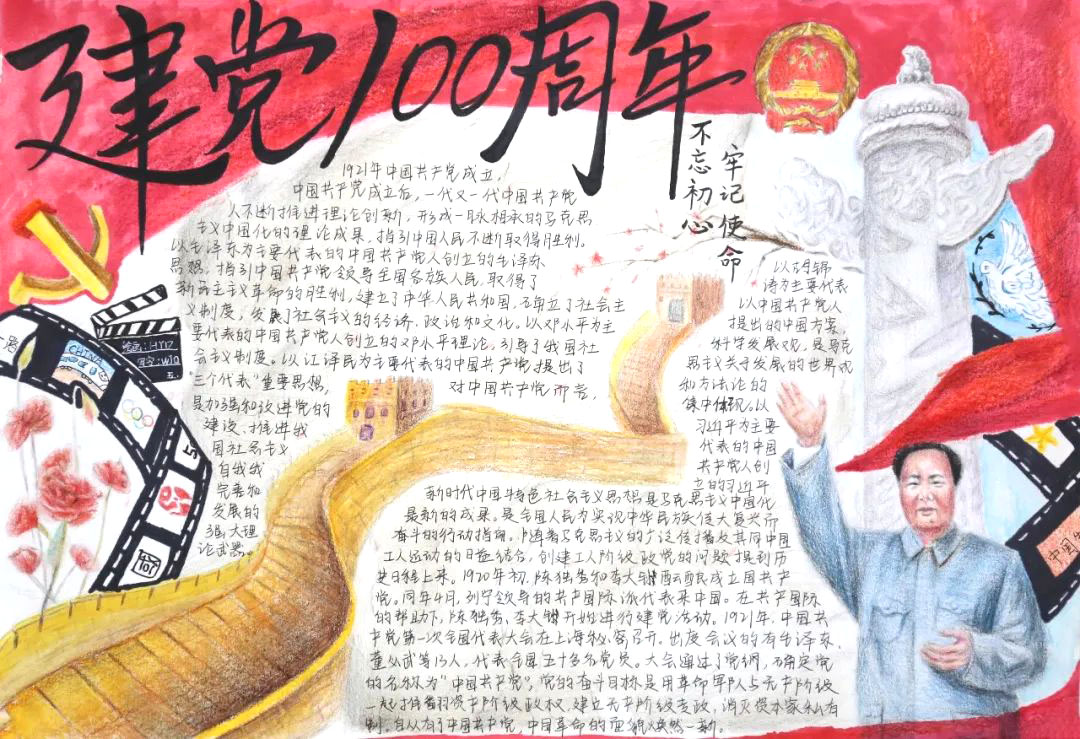 建党100周年
不忘初心
牢记使命
1921年中国共产党成立，
中国共产党成立后，一代又一代中国共产党
人不断推进理论创新，形成一脉相承的马克思
主义中国化的理论成果，指引中国人民不断取得胜利。
以毛泽东为主要代表的中国共产党人创立的毛泽东
思想，指引中国共产党领导全国各族人民，取得了
新民主主义革命的胜利，建立了中华人民共和国，确立了社会主
义制度，发展了社会主义的经济、政治和文化。以邓小平为主
要代表的中国共产党人创立的邓小平理论，引导了我国社
会主义制度。以江泽民为主要代表的中国共产党提出了
三个代表"重要思想，
对中国共产党而言，
是加强和改进党的
建设、推进我
国社会主义
自我我
完善和
发展的
强大理
论武器。
以胡锦
涛为主要代表
以中国共产党人
提出的中国方案，
科学发展观，是马克
思主义关于发展的世界观
和方法论的
集中体现。以
习近平为主要
代表的中国
共产党人创
立的习近平
新时代中国特色社会主义思想是马克思主义中国化
最新的成果。是全国人民为实现中华民族伟大复兴而
奋斗的行动指南。随着马克思主义的广泛传播及其同中国
工人运动的日益结合，创建工人阶级政党的问题提到历
史日程上来。1920年初，陈独秀和李大钊酝酿成立国共产
党。同年4月，列宁领导的共产国际派代表来中国。在共产国际
的帮助下，陈独秀、李大钊开始进行建党活动。1921年，中国共
产党第一次全国代表大会在上海秘密召开。出席会议的有毛泽东、
董必武等13人，代表全国五十多名党员。大会通过了党纲，确定党
的名称为"中国共产党"，党的奋斗目标是用革命军队与无产阶级
一起推翻资产阶级政权，建立无产阶级专政，消灭资本家私有
制。自从有了中国共产党，中国革命的面貌焕然一新。
绘画：HYZ
CHINA
中国